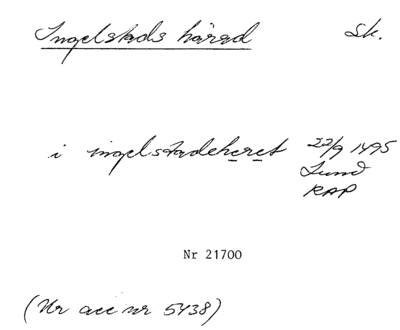 Ingelstads härad Sk.
i ingelstadeheret 22/9 1495
Lund
RAP
Nr 21700
(Ur acc nr 5438)